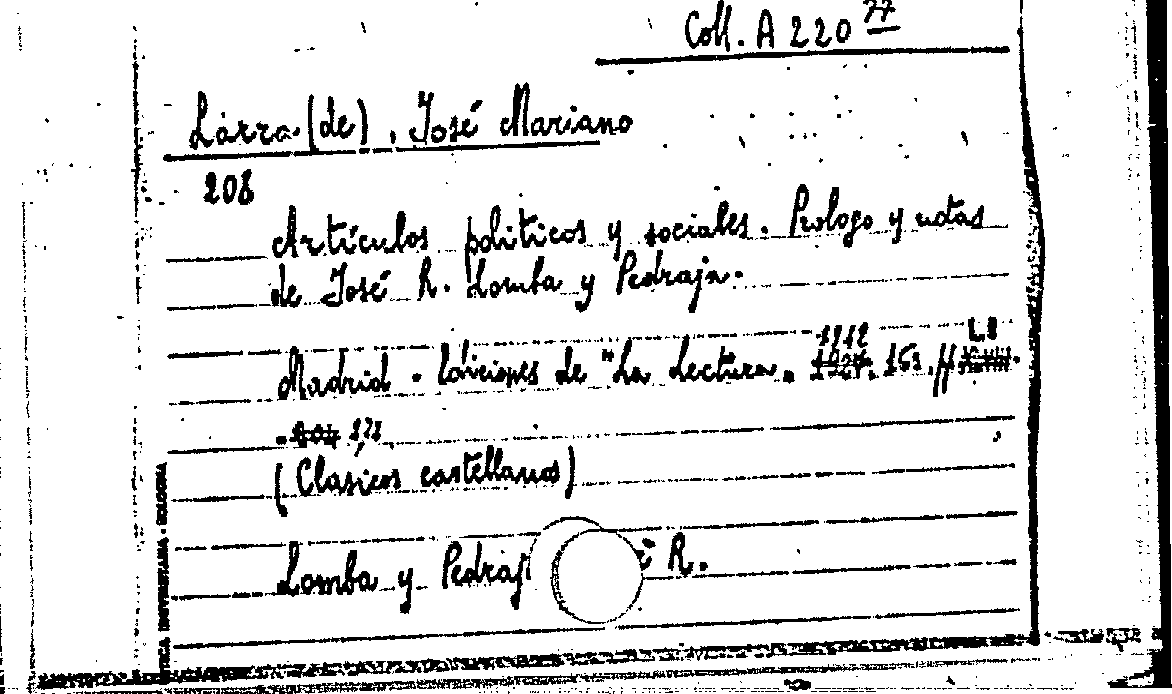 Coll. A 220 77
Larra (de), José Mariano
208
Artículos politicos y sociales. Prologo y notas
de José R. Lomba y Pedraja.
Madrid. Ediciones de "La Lectura.
(Clasicos castellanos)
Lomba y Pedraj R.